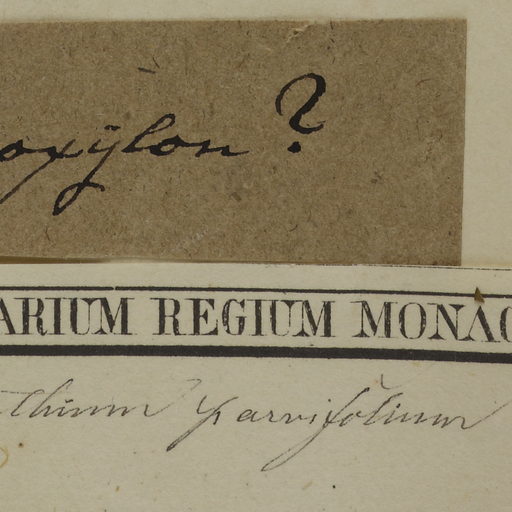 oxylon ?
ARIUM REGIUM MONAC
thinum parvifolium